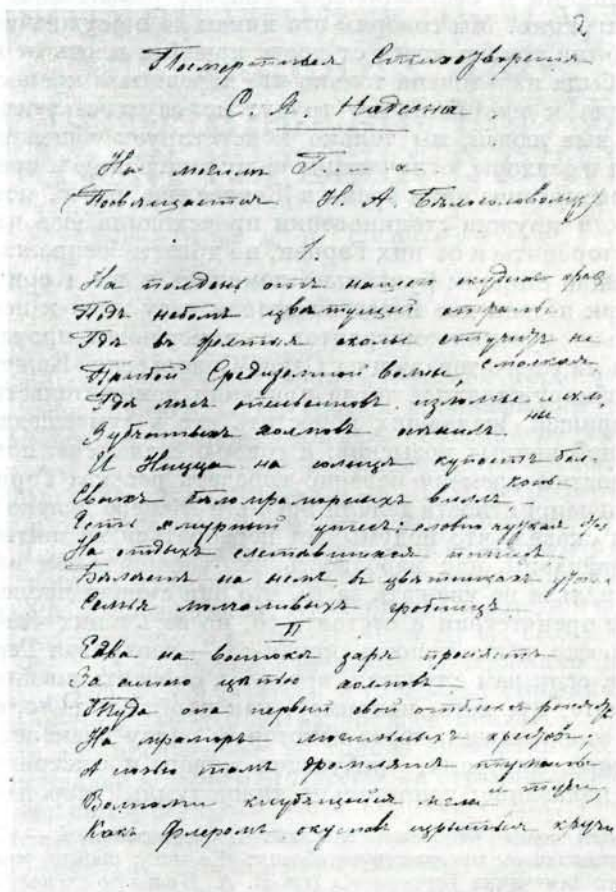 2
Посмертныя Стихотворенія
С. Я. Надсона.
На могилѣ
(Посвящается Н. А. Бѣлоголовому)
I
На полдень отъ нашего скуднаго края
Подъ небомъ цвѣтущей страны
Гдѣ въ желтыя скалы стучитъ не смолкая
Прибой Средиземной волны,
Гдѣ лѣсъ апельсиновъ изломы и склоны
Зубчатыхъ холмовъ осѣнилъ
И Ницца на солнцѣ купаетъ балконы
Своихъ бѣломраморныхъ виллъ
Есть хмурный утесъ: словно чуткая
На отдыхъ слетавшихся птицъ
на немъ въ цвѣтникахъ
Семья молчаливыхъ гробницъ
II
Едва на востокѣ заря
За синею цѣпью холмовъ
Туда она первый свой отблескъ роняетъ
На мраморъ могильныхъ крестовъ,
А ночью тамъ туманы и тучи,
Волнами клубящейся мглы
Какъ флеромъ окутавъ изрытыя кручи